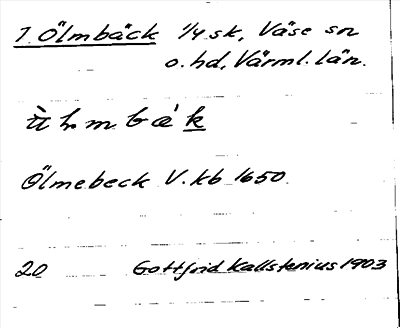 1 Ölmbäck 1/4 sk, Väse sn
o. hd, Värml. län.
Ölmebeck V. kb 1650
20 Gottfrid Kallstenius 1903